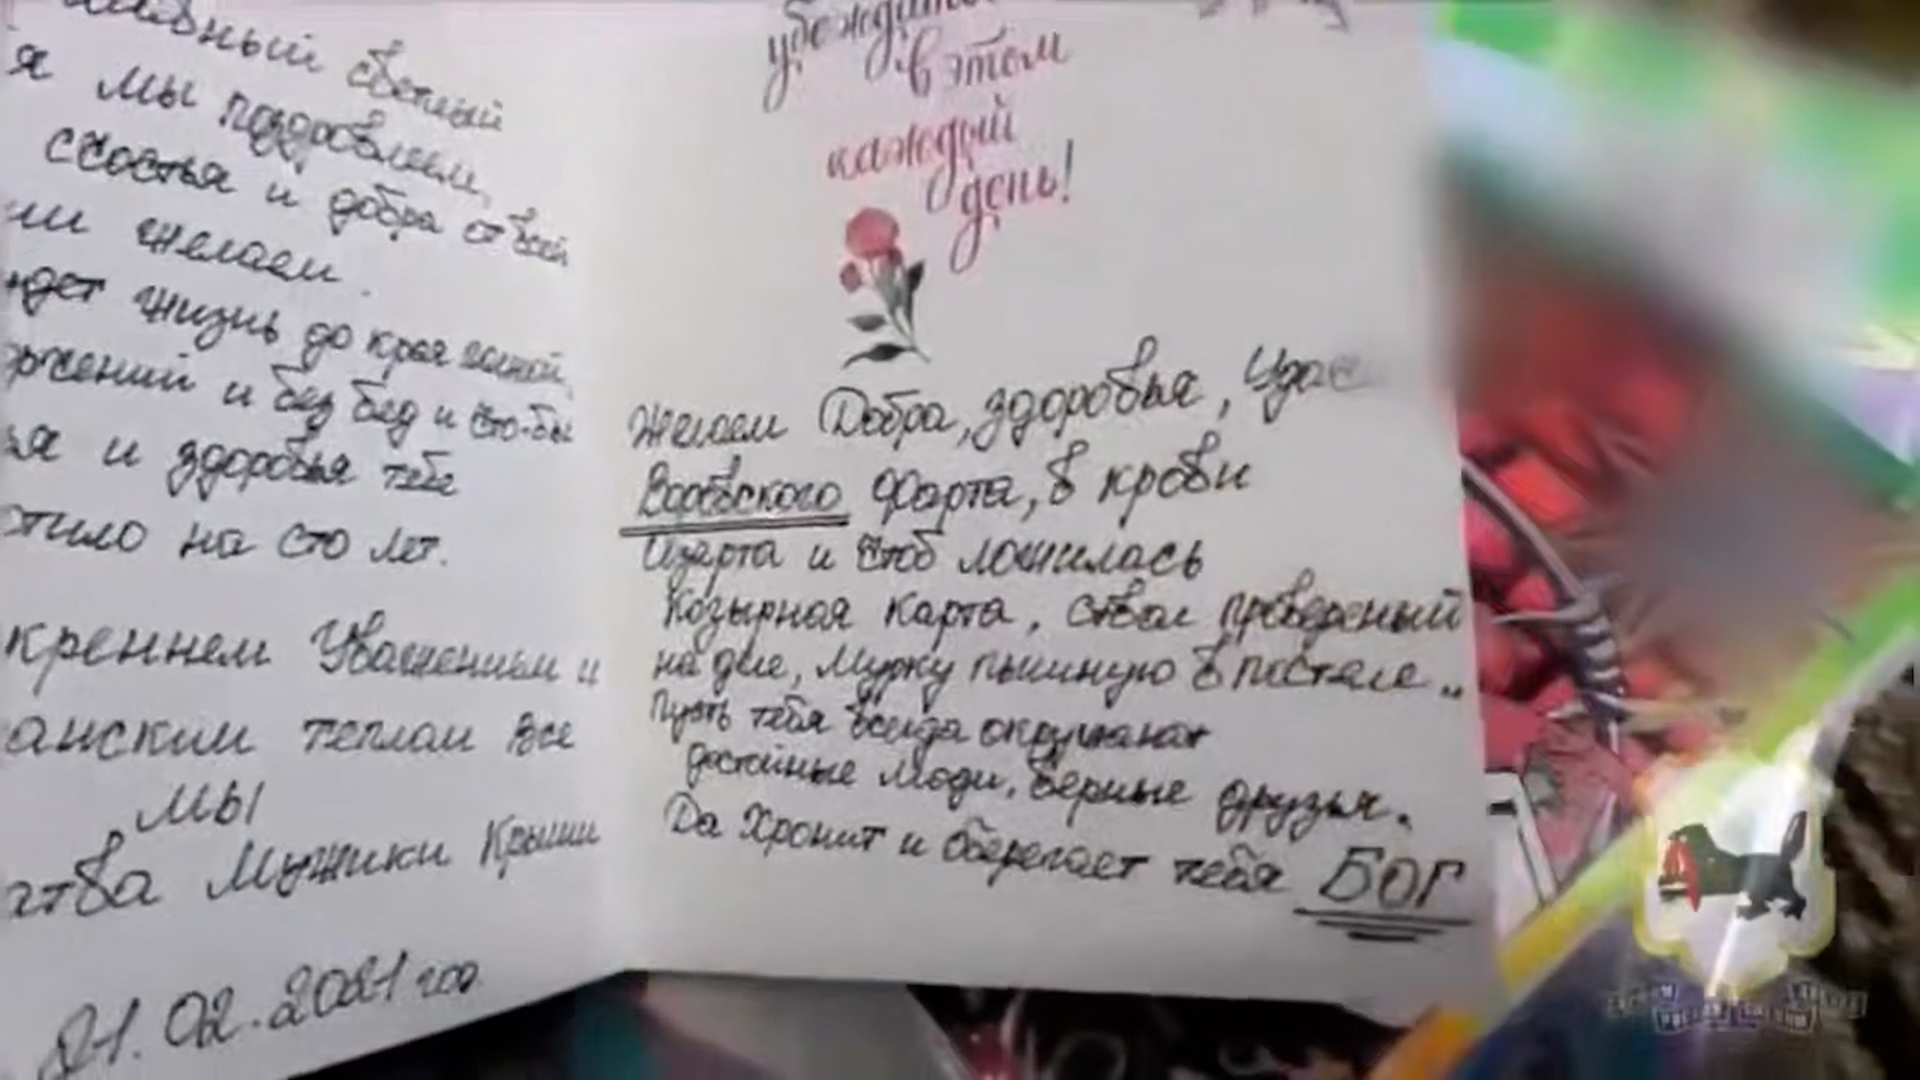 светлый
я мы поздровляем,
счостья и добра от всей
ши желаем.
дет жизнь до края полной,
и без бед и что-бы
ья и здоровья тебе
стило на сто лет.
креннем Уважением и
анским теплом все
мы
атва Мужики Крыши
21.02.2021 год
убеждаться
в этом
каждый
день!
Желаем Добра, здоровья, Удач
Воровского фарта, в крови
Азарта и чтоб ложилась
Козырная карта, ствол проверенный
на деле, Мурку пышную в постеле..
Пусть тебя всегда окружают
достойные люди, верные друзья.
Да Хронит и оберегает тебя БОГ